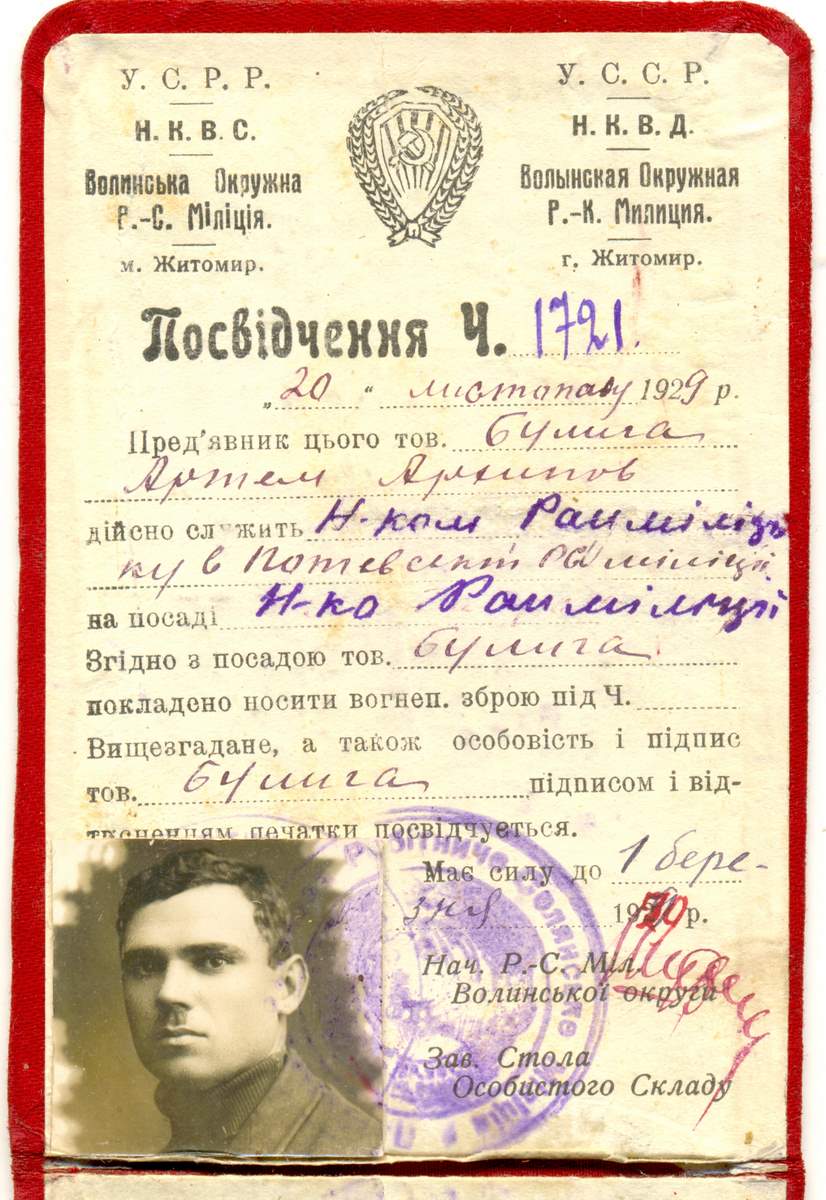 У. С. Р. Р.
Н. К. В. С.
Волинська Окружна
Р.-С. Міліція.
м. Житомир.
У. С. С. Р.
Н. К. В. Д.
Волынская Окружная
Р.-К. Милиция.
г. Житомир.
Посвідчення Ч. 1721.
„20“ листопаду 1929 р.
Пред'явник цього тов. Булига
Артем Архипов
дійсно служить Н-ком
на посаді Н-ка Райміліції
Згідно з посадою тов. Булига
покладено носити вогнеп. зброю під Ч.
Вищезгадане, а також особовість і підпис
тов. Булига підписом і від-
тисненням печатки посвідчується.
Має силу до 1 бере-
зня р.
Нач. Р.-С. Міл.
Волинської округи
Зав. Стола
Особистого Складу